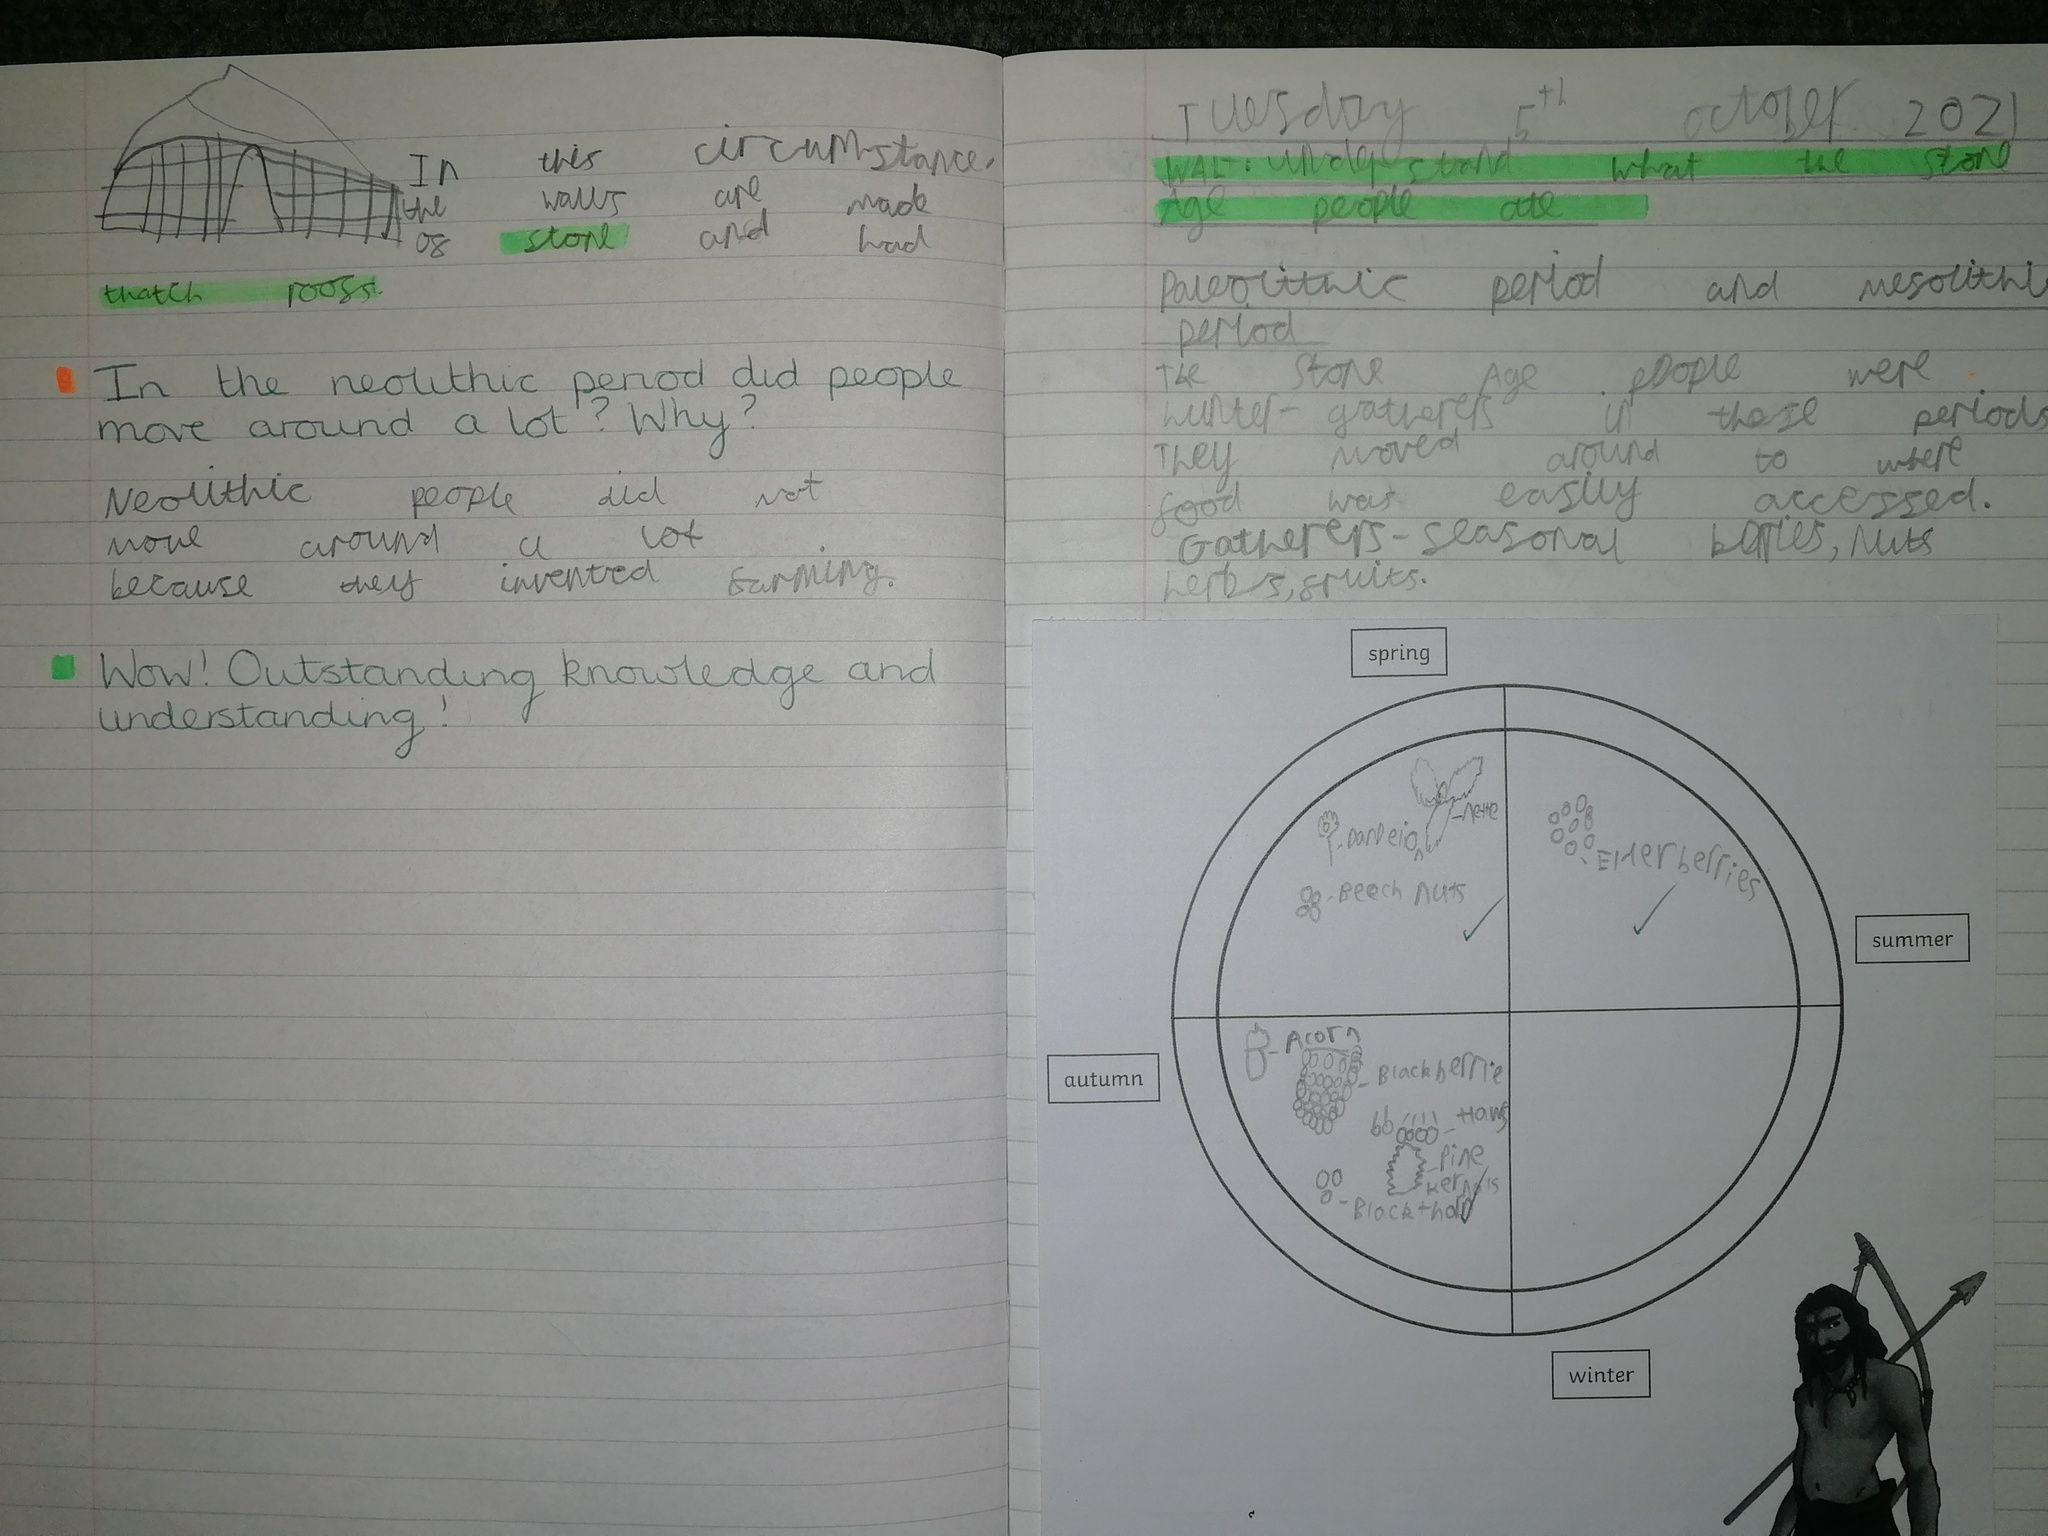 In this circumstance,
the walls are made
of stone and had
thatch roofs.
In the neolithic period did people
move around a lot? Why?
Neolithic people did not
move around a lot
because they invented farming.
Wow! Outstanding knowledge and
understanding!
Tuesday 5th october 2021
WAL: understand what the stone
Age people ate
Paleolithic period and mesolithic
period
The Stone Age people were
hunter-gatherers in these periods
They moved around to where
food was easily accessed.
Gatherers-seasonal berries, nuts
herbs, fruits.
spring
-Nettle
-Dandelion
-Elderberries
-Beech nuts
summer
autumn
-Acorn
-Blackberrie
-Haws
-Pine
kernals
-Blackthorn
winter